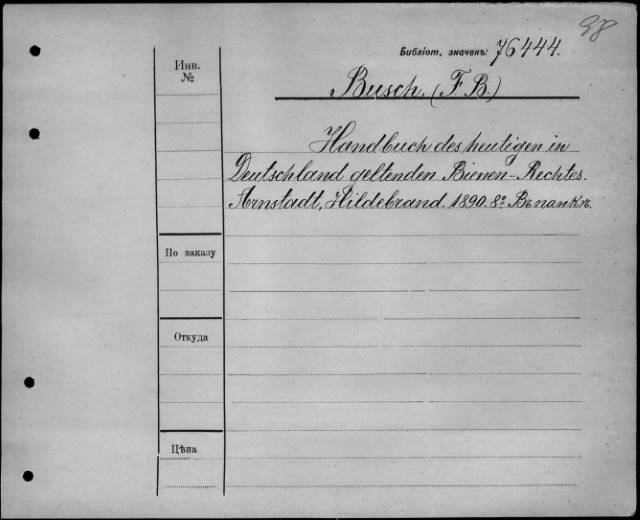 98
Библіот. значенъ: 76444.
Инв.
№
Busch, (F. B.)
Handbuch des heutigen in
Deutschland geltenden Bienen-Rechtes.
Arnstadt, Hildebrand. 1890. 8º. Въ папкѣ.
По заказу
Откуда
Цѣна